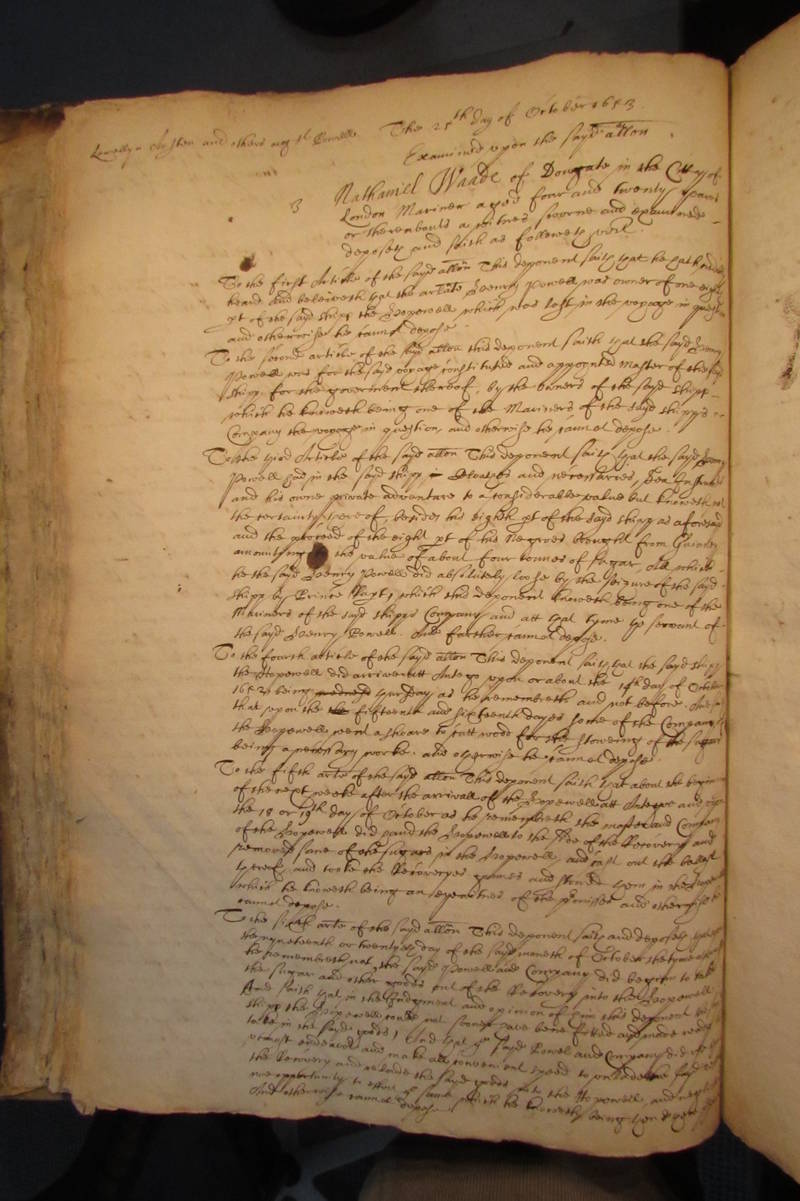 The 25th day of October 1653.
Lewellyn Austen and others agt Powell
Examined upon the sayd allon
3
Nathaniel Waade of Dowgate in the Citty of
London Mariner aged four and twenty yeares
or thereabouts a witnes sworne and examined
deposeth and saith as followeth vizt.
To the first Article of the sayd allon This deponent saith that he hath
heard and beleiveth that the arlate Henry Powell was owner of one eight
pt of the sayd shipp the Hopewell which was lost in the voyage in question
and otherwise he cannot depose.
To the second article of the sayd allon this deponent saith that the sayd Henry
Powell was for the sayd voyage constituted and appointed Master of the sayd
shipp, for the goverment thereof, by the owners of the sayd shipp
which he knoweth being one of the Mariners of the sayd shipps
Company the voyage in question and otherwise he cannot depose.
To the third Article of the sayd allon This deponent saith that the sayd Henry
Powell had in the sayd shipp in Cloathes and necessaries, Sea Instruments
and his owne private adventure to a considerable value but knoweth not
the certainty thereof, besides his eighth pt of the sayd shipp as aforesayd
and the proceed of the eight pt of his Negroes bought from Guinney
amounting the value of about four tonnes of sugar, all which
he the sayd Henry Powell did absolutely loose by the seizure of the sayd
shipp by Prince Rupt, which this deponent knoweth being one of the
Mariners of the sayd shipps Company and att that tyme the servant of
the sayd Henry Powell. And further cannot depose.
To the fourth article of the sayd allon This deponent saith that the sayd shipp
the Hopewell did arrive att Antego upon or about the 14th day of October
1652 being thursday as he remembreth and not before. And saith
that upon the fifteenth and sixteenth dayes some of the Company of
the Hopewell went a shoare to cutt wood for the stowering of the sugars
being a necessary worke. and otherwise he cannot depose.
To the fifth arle of the sayd allon This deponent saith that about the beginning
of the next weeke after the arrivall of the Hopewell att Antego and upon
the 18 or 19th day of October as he remembreth the master and Company
of the Hopewell did hand the Hopewell to the side of the Recovery and
removed some of the sugars in the Hopewell and cast out the ballast
thereof, and tooke the Recoveryes and stowed them in the Hopewell
which he knoweth being an eyewitnes of the premisses and otherwise he
cannot depose.
To the sixth arle of the sayd allon This deponent saith and deposeth that upon
the nyneteenth or twentyeth day of the sayd moneth of October the tyme
he remembreth not, the sayd Powell and Company did begin to take
the sugar and other goods out of the Recovery into the Hopewell
And saith that in the Judgment and opinion of him this deponent the sayd
shipp the Hopewell could not sooner have bene fitted and made ready
to take in the sayd goods, And that the sayd Powel and Company did use their
utmost endeavor and make all convenient speed to unlade the sayd
the Recovery and relade the sayd goods into the Hopewell, and neglected
noe opportunity to effect the same which he knoweth being then
And otherwise cannot depose.